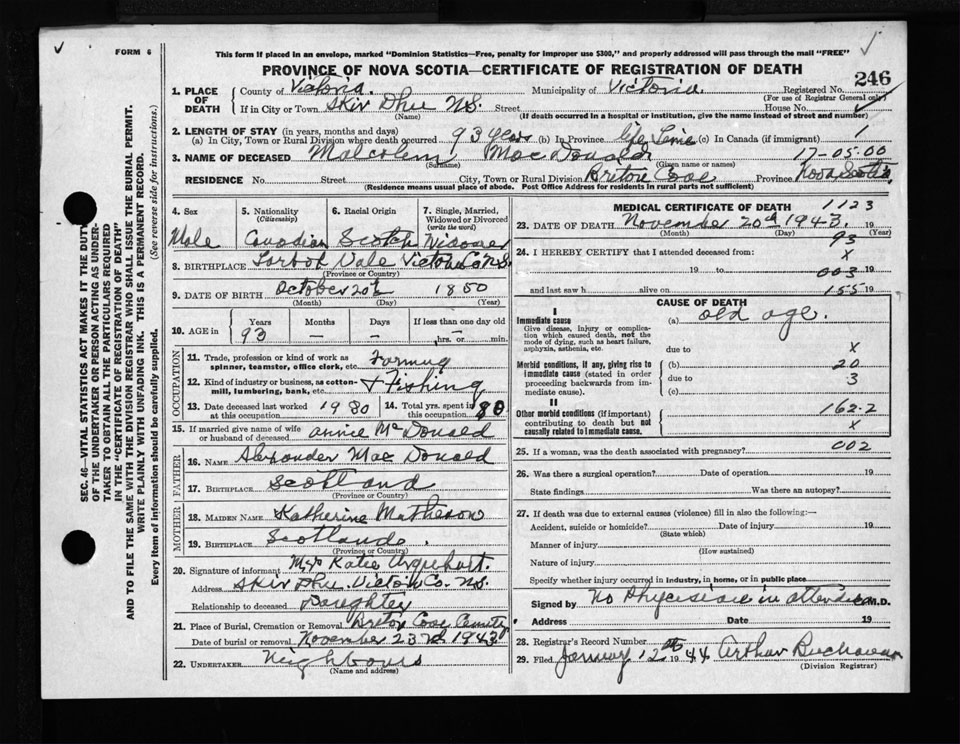 FORM 6
This form if placed in an envelope, marked "Dominion Statistics—Free, penalty for improper use $300," and properly addressed will pass through the mail "FREE"
PROVINCE OF NOVA SCOTIA—CERTIFICATE OF REGISTRATION OF DEATH
246
SEC. 46—VITAL STATISTICS ACT MAKES IT THE DUTY
OF THE UNDERTAKER OR PERSON ACTING AS UNDER-
TAKER TO OBTAIN ALL THE PARTICULARS REQUIRED
IN THE "CERTIFICATE OF REGISTRATION OF DEATH"
AND TO FILE THE SAME WITH THE DIVISION REGISTRAR WHO SHALL ISSUE THE BURIAL PERMIT.
WRITE PLAINLY WITH UNFADING INK. THIS IS A PERMANENT RECORD.
Every item of information should be carefully supplied. (See reverse side for instructions.)
1. PLACE OF DEATH
County of Victoria. Municipality of Victoria. Registered No.
(For use of Registrar General only)
If in City or Town Skir Dhu N.S. Street House No.
(Name) (If death occurred in a hospital or institution, give the name instead of street and number)
2. LENGTH OF STAY (in years, months and days)
(a) In City, Town or Rural Division where death occurred 93 years (b) In Province life Time (c) In Canada (if immigrant) 1
3. NAME OF DECEASED Malcolem Mac Donald 17-05.00
(Surname) (Given name or names)
RESIDENCE No. Street City, Town or Rural Division Briton Cove Province Nova Scotia
(Residence means usual place of abode. Post Office Address for residents in rural parts not sufficient)
4. Sex
Male
5. Nationality
(Citizenship)
Canadian
6. Racial Origin
Scotch
7. Single, Married,
Widowed or Divorced
(write the word)
Widower
8. BIRTHPLACE Tarbot Vale Victoria Co N.S.
(Province or Country)
9. DATE OF BIRTH October 20th 1850
(Month) (Day) (Year)
10. AGE in
Years Months Days If less than one day old
93 — — hrs. or min.
OCCUPATION
11. Trade, profession or kind of work as
spinner, teamster, office clerk, etc. Farming
12. Kind of industry or business, as cotton-
mill, lumbering, bank, etc. & Fishing
13. Date deceased last worked
at this occupation 1930
14. Total yrs. spent in
this occupation 80
15. If married give name of wife
or husband of deceased Annie McDonald
FATHER
16. NAME Alexander Mac Donald
17. BIRTHPLACE Scotland
(Province or Country)
MOTHER
18. MAIDEN NAME Katherine Matheson
19. BIRTHPLACE Scotland.
(Province or Country)
20. Signature of informant Mrs Katie Urquhart.
Address Skir Dhu. Victoria Co. N.S.
Relationship to deceased Daughter
21. Place of Burial, Cremation or Removal Briton Cove Cemetery
Date of burial or removal November 23rd 1943
22. UNDERTAKER Neighbours
(Name and address)
MEDICAL CERTIFICATE OF DEATH 1123
23. DATE OF DEATH November 20th 1943.
(Month) (Day) (Year)
93
24. I HEREBY CERTIFY that I attended deceased from:
x
19 to 003 19
and last saw h alive on 155 19
CAUSE OF DEATH
I
Immediate cause (a) old age.
Give disease, injury or complica-
tion which caused death, not the
mode of dying, such as heart failure,
asphyxia, asthenia, etc.
due to x
Morbid conditions, if any, giving rise to
immediate cause (stated in order
proceeding backwards from im-
mediate cause).
(b) 20
due to 3
(c)
II
Other morbid conditions (if important)
contributing to death but not
causally related to immediate cause.
162.2
x
25. If a woman, was the death associated with pregnancy? 002
26. Was there a surgical operation? Date of operation 19
State findings Was there an autopsy?
27. If death was due to external causes (violence) fill in also the following:—
Accident, suicide or homicide? Date of injury 19
(State which)
Manner of injury
(How sustained)
Nature of injury
Specify whether injury occurred in industry, in home, or in public place
Signed by No Physician in attendance M.D.
Address Date 19
28. Registrar's Record Number
29. Filed January 12th 1944 Arthur Buchanan
(Division Registrar)